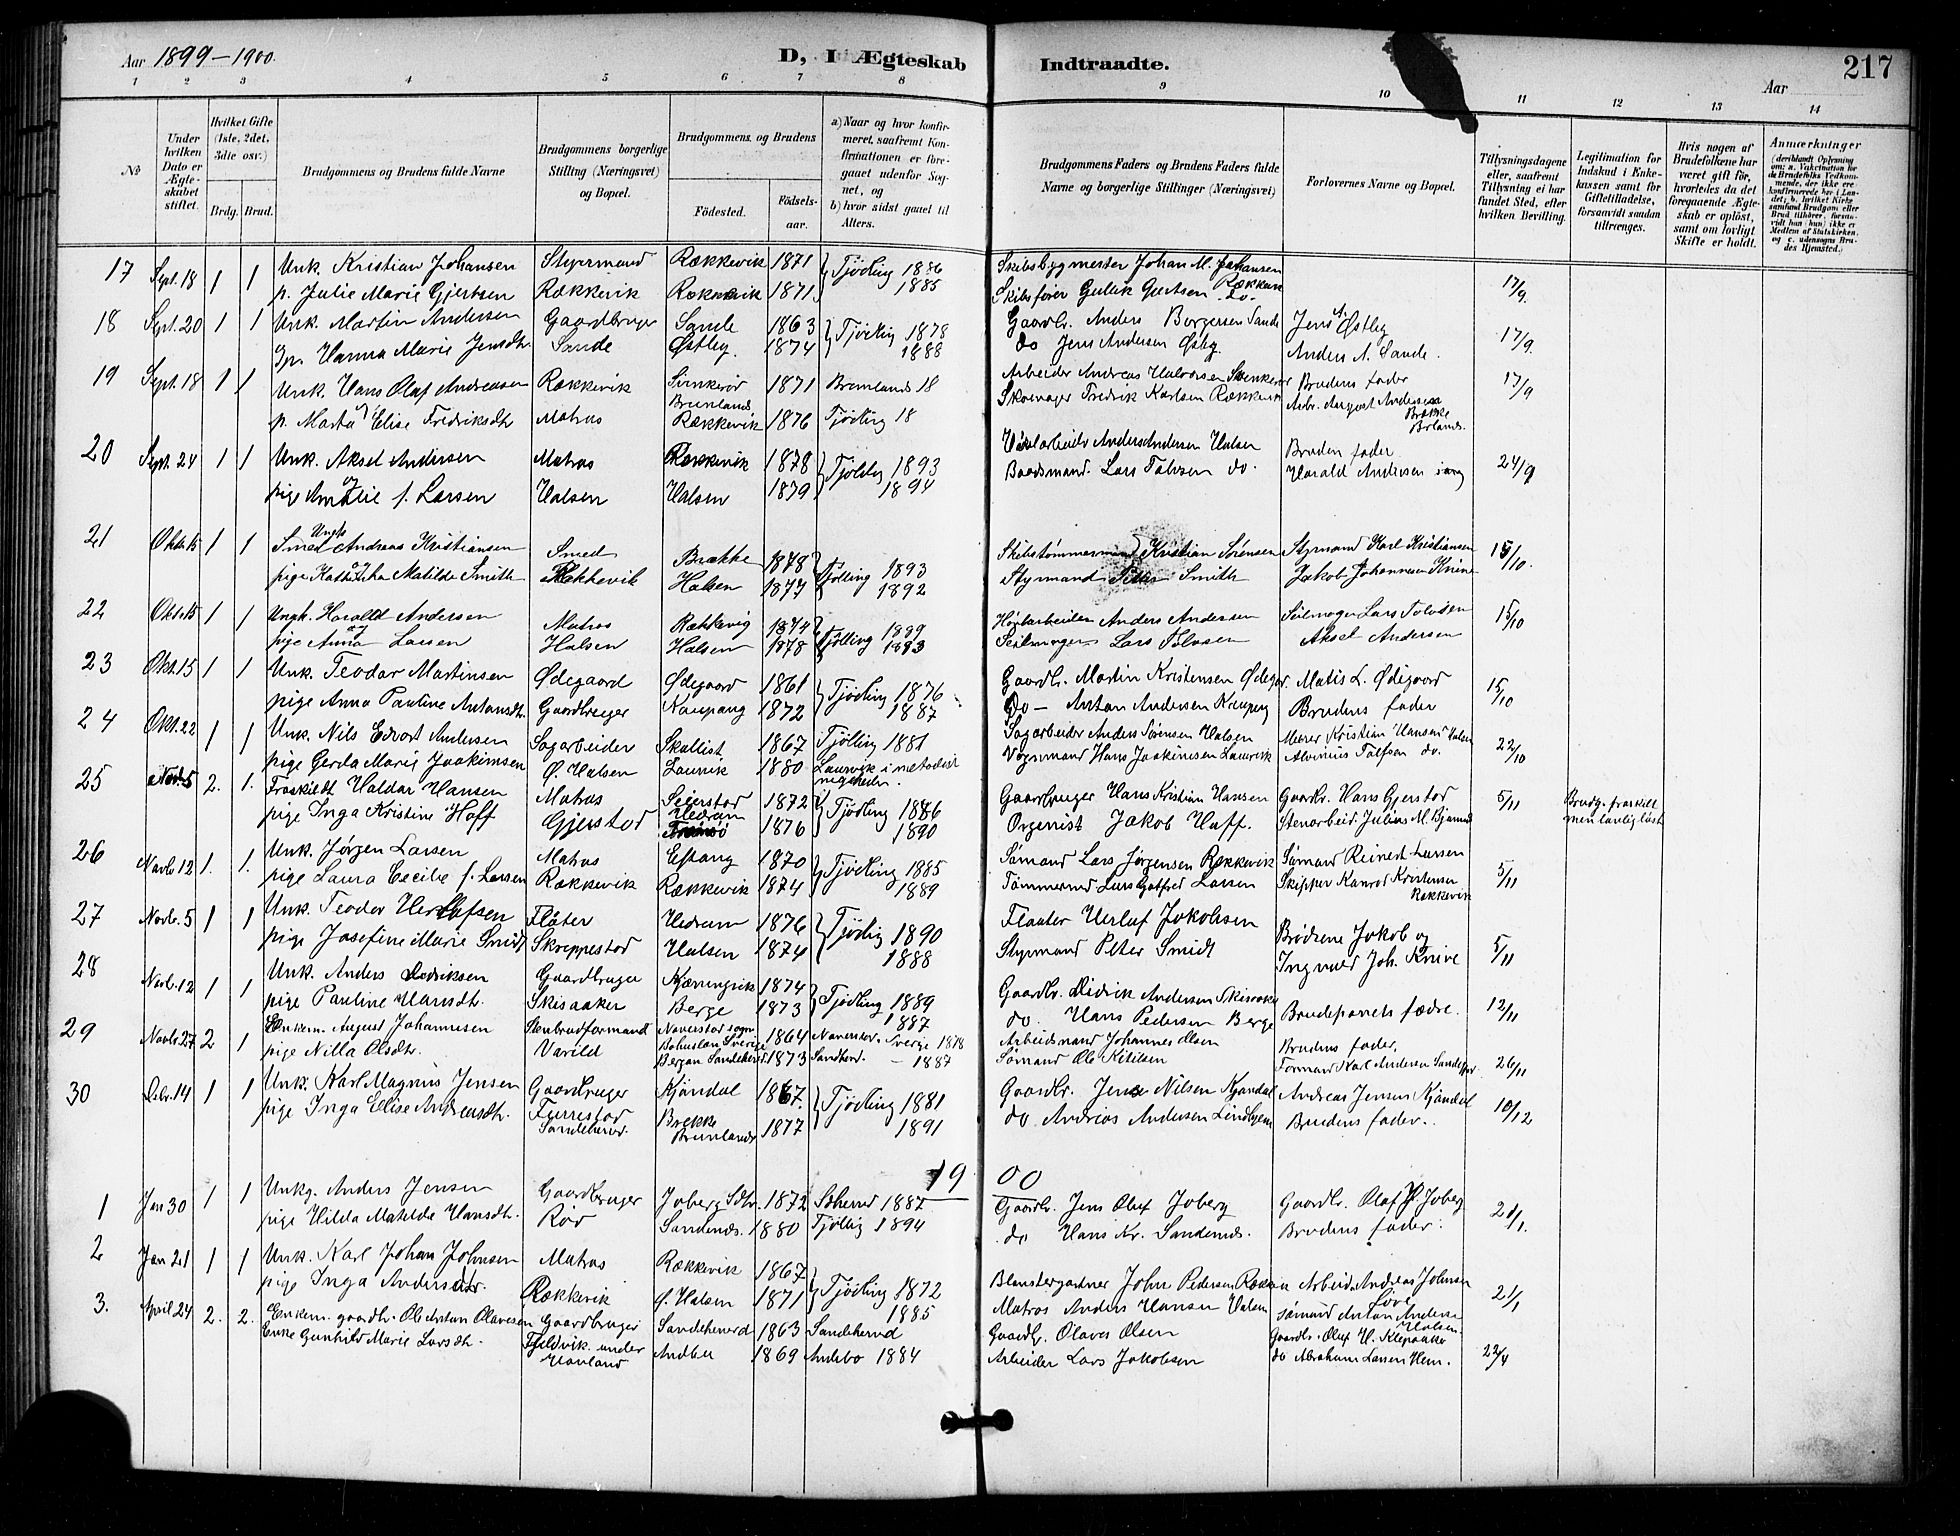 Aar 1899–1900.
D, I Ægteskab
Indtraadte.
217
Aar
1 2 3 4 5 6 7 8 9 10 11 12 13 14
No
Under hvilken Dato er Ægteskabet stiftet.
Hvilket Gifte (1ste, 2det, 3die osv.)
Brdg. Brud.
Brudgommens og Brudens fulde Navne
Brudgommens borgerlige Stilling (Næringsvei) og Bopæl.
Brudgommens og Brudens
Fødested. Fødselsaar.
a) Naar og hvor konfirmeret, saafremt Konfirmationen er foregaaet udenfor Sognet, og
b) hvor sidst gaaet til Alters.
Brudgommens Faders og Brudens Faders fulde Navne og borgerlige Stillinger (Næringsvei)
Forlovernes Navne og Bopæl.
Tillysningsdagene eller, saafremt Tillysning ei har fundet Sted, efter hvilken Bevilling.
Legitimation for Indskud i Enkekassen samt for Giftetilladelse, forsaavidt saadan tiltrænges.
Hvis nogen af Brudefolkene har været gift før, hvorledes da det foregaaende Ægteskab er opløst, samt om lovligt Skifte er holdt.
Anmærkninger
17 Sept. 18 1 1 Unk. Kristian Johansen Styrmand Rækkevik 1871 Tjødling 1886 Skibsbygmester Johan M. Johansen 17/9.
p. Julie Marie Gjertsen Rækkevik Rækkevik 1871 1885 Skibsfører Gullik Gjertsen do.
18 Sept. 20 1 1 Unk. Martin Andersen Gaardbruger Sande 1863 Tjødling 1878 Gaardbr. Anders Borgersen Sande Jens A. Østby 17/9.
p. Hanna Marie Jensdtr. Sande Østby. 1874 1888 do Jens Andersen Østby Anders A. Sande.
19 Sept. 18 1 1 Unk. Hans Olaf Andreasen Rækkevik 1871 Brunlands 18 Arbeider Andreas Halvorsen Brudens fader 17/9
p. Marta Elise Fredriksdtr Matros Brunlands Rækkevik 1876 Tjødling 18 Fredrik Karlsen Rækkevik Arbr. August Andersen Brække Brlands.
20 Sept. 24 1 1 Unk. Aksel Andersen Matros Rækkevik 1878 Tjølling 1893 Anders Andersen Halsen Bruden fader 24/9
pige Amalie f. Larsen Halsen Halsen 1879 1894 Baadsmand. Lars do. Harald Andersen
21 Oktb. 15 1 1 Ungk. Smed Andreas Kristiansen Smed Brække 1878 Tjølling 1893 Skibstømmermand Kristian Sørensen Styrmand Karl Kristiansen 15/10.
pige Matilde Smith Rækkevik Halsen 1877 1892 Styrmand Peter Smith Jakob Johannesen Knive
22 Oktb. 15 1 1 Ungk. Harald Andersen Matros Rækkevig 1874 Tjølling 1889 Anders Andersen Seilmager Lars 15/10
pige Anna Larsen Halsen Halsen 1878 1893 Seilmager Lars Aksel Andersen
23 Okt. 15 1 1 Unk. Teodor Martinsen Ødegaard Ødegaard 1861 Tjødling 1876 Gaardbr. Martin Kristensen Matis L. Ødegaard 15/10
pige Anna Pauline Antonsdtr. Gaardbruger Kaupang 1872 1887 Do – Anton Andersen Kaupang Brudens fader
24 Okt. 22 1 1 Unk. Nils Edvart Andersen Sagarbeider Skallist 1867 Tjølling 1881 Sagarbeider Anders Sørensen Halsen Murer Kristian Hansen Halsen 22/10
pige Gerda Marie Joakimsen Ø. Halsen Laurvik 1880 Laurvik i metodist menigheden. Vognmand Hans Joakimsen Laurvik do.
25 Novb. 5 2. 1. Fraskildt Haldar Hansen Matros Seierstad 1872 Tjødling 1886 Gaardbruger Hans Kristian Hansen Gaardbr. Hans Gjerstad 5/11 Brudg. fraskilt
pige Inga Kristine Hoff Gjerstad Hedrum 1876 1890 Organist Jakob Hoff. Stenarbeid. Julius M. Bjønnes
26 Novb. 12 1. 1. Unk. Jørgen Larsen Matros Eftang 1870 Tjødling 1885 Sømand Lars Jørgensen Rækkevik Sømand Reinert Larsen 5/11
pige Laura Cecilie f. Larsen Rækkevik Rækkevik 1874 1889 Tømmermd Lars Gotfred Larsen Skipper Konrad Kristensen Rækkevik
27 Novb. 5 1 1 Unk. Teodor Herlofsen Fløter Hedrum 1876 Tjødling 1890 Fløter Herlof Jakobsen Brødrene Jakob og 5/11
pige Josefine Marie Smidt Skreppestad Halsen 1874 1888 Styrmand Peter Smidt Ingvald Joh. Knive
28 Novb. 12 1 1 Unk. Anders Didriksen Gaardbruger 1874 Tjødling 1889 Gaardbr. Didrik Andersen Skisaaker 12/11
pige Pauline Hansdtr. Skisaaker Berge 1873 1887 do. Hans Pedersen Berge Brudeparets fædre.
29 Novb. 27 2 1 Enkem. August Johannesen Stenbrudformand Naverstad sogn Bohuslen Sverige 1864 Naverstad. Sverige 1878 Arbeidsmand Johannes Olsen Brudens fader,
pige Nilla Olsdtr. Varild Bergan Sandeherd 1873 Sandherd – 1887 Sømand Ole Formand Karl Andersen 26/11
30 Debr. 14 1 1 Unk. Karl Magnus Jensen Gaardbruger Kjøndal 1867. Tjødling 1881 Gaardbr. Jens Nilsen Kjøndal Andreas Jensen Kjøndal 10/12
pige Inga Elise Andreasdtr. Furrestad Sandeherd. Brække Brunlands 1877 1891 do. Andreas Andersen Brudens fader.
19 00
1 Jan 30 1 1 Unkg. Anders Jensen Gaardbruger Joberg Sdhr. 1872 Sdherred 1887 Gaardbr. Jens Olaf Joberg Gaardbr. Olaf Joberg 21/1.
pige Hilda Matilde Hansdtr. Rød Sandenes. 1880 Tjøllig 1894 do Hans Kr. Sandenes. Brudens fader.
2 Jan 21 1 1 Unk. Karl Johan Johnsen Matros Rækkevik 1867 Tjødling 1872 John Pedersen Arbeid. Andreas Johnsen 21/1
pige Inga Andersdtr. Rækkevik Ø. Halsen 1871 1885 Matros Anders Hansen Halsen Sømand Anton Andersen Halsen.
3. April 24 2. 2. Enkem. gaardbr. Ole Anton Olavesen Gaardbruger Sandeherred 1863 Sandeherred Gaardbr. Olaves Olsen Gaardbr. Olaf H. Klepaaker 22/4
Enke Gunhild Marie Larsdtr. Fjeldvik under Haaland Andebu 1869 Andebo 1884 Arbeider Lars Jakobsen do Abraham Larsen Hem.